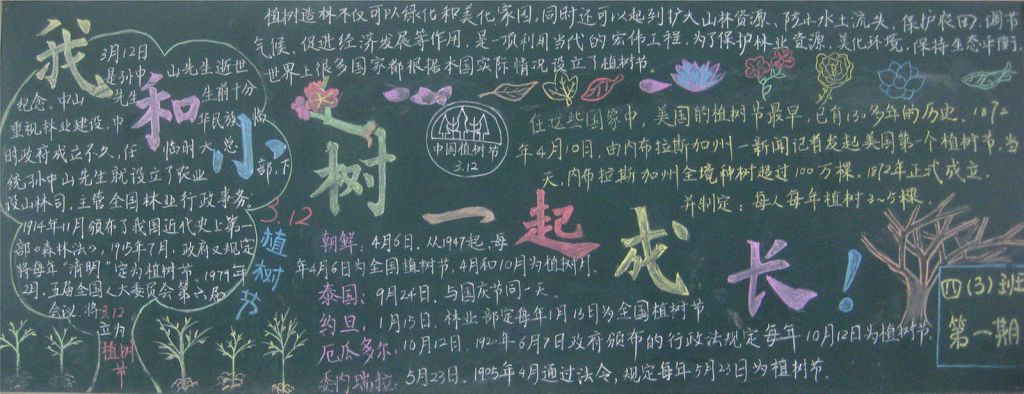 植树造林不仅可以绿化和美化家园,同时还可以起到扩大山林资源、防止水土流失、保护农田、调节
气候、促进经济发展等作用,是一项利用当代的宏伟工程,为了保护林业资源,美化环境,保持生态平衡,
世界上很多国家都根据本国实际情况设立了植树节。
我和小树一起成长!
3月12日
是孙中山先生逝世
纪念,中山先生生前十分
重视林业建设,中华民族临
的政府成立不久,任临时大总
统孙中山先生就设立了农业部,下
设山林司,主管全国林业行政事务,
1914年11月颁布了我国近代史上第一
部《森林法》,1915年7月,政府又规定
将每年“清明”定为植树节,1979年
2月,五届全国人大委员会第六届
会议,将3.12
立为
植树
节
3.12
植树节
中国植树节
3.12
在这些国家中,美国的植树节最早,已有130多年的历史。1872
年4月10日,由内布拉斯加州一新闻记者发起美国第一个植树节,当
天,内布拉斯加州全境种树超过100万棵。1812年正式成立,
并制定:每人每年植树3~5棵。
朝鲜:4月6日,从1947起,每
年4月6日为全国植树节,4月和10月为植树月。
泰国:9月24日,与国庆节同一天。
约旦,1月15日,林业部定每年1月15日为全国植树节
厄瓜多尔,10月12日,192年6月7日政府颁布的行政法规定每年10月12日为植树节
委内瑞拉:5月23日,1905年4月通过法令,规定每年5月23日为植树节.
四(3)班
第一期